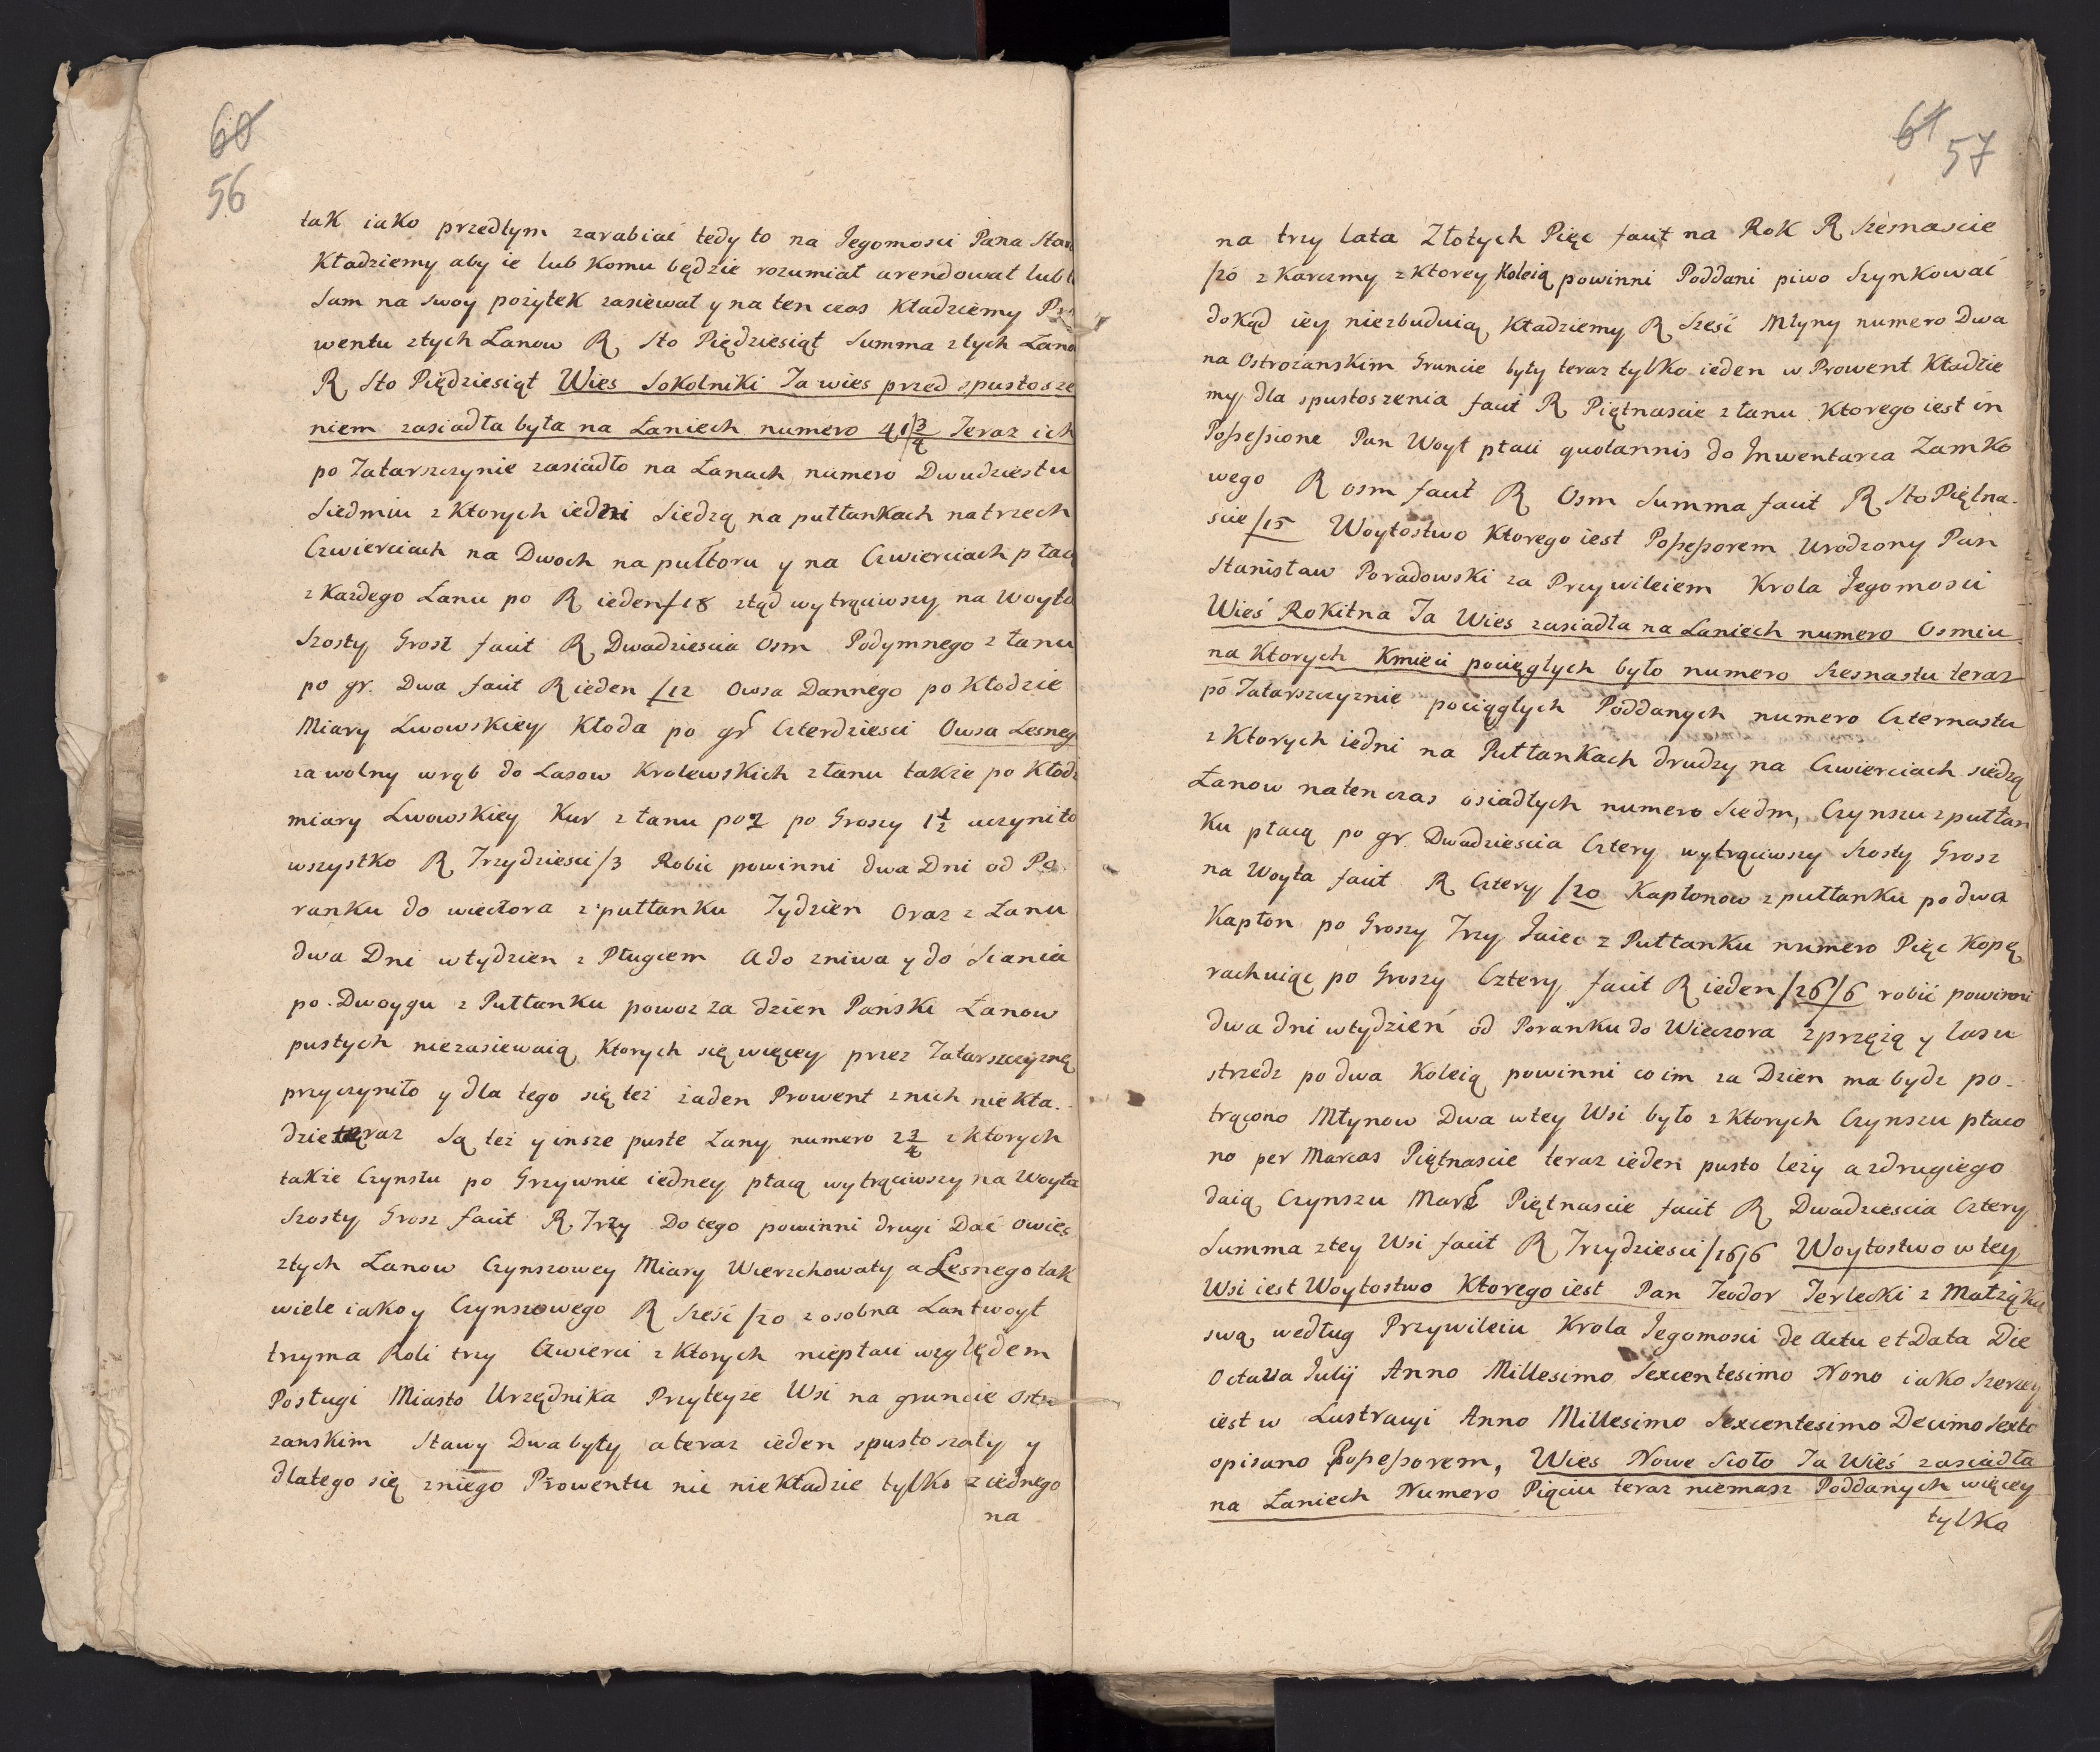 60
56
tak iako przedtym zarabiać tedy to na Jegomosci Pana
Kładziemy aby ie lub komu będzie rozumiał arendował lub
Sam na swoy pożytek zasiewał y na ten czas Kładziemy
wentu ztych Łanow R Sto Piędziesiąt Summa ztych
R Sto Piędziesiąt Wies Sokolniki Ta wies przed spustosze
niem zasiadła była na Łaniech numero 41 3/4 Teraz ich
po Tatarszczynie zasiadło na Łanach numero Dwudziestu
Siedmiu z Ktorych iedni Siedzą na pułłankach na trzech
Czwierciach na Dwoch na pułtoru y na Czwierciach płacą
z Każdego Łanu po R ieden/18 ztąd wytrąciwszy na Woyta
Szosty Grosz facit R Dwadziescia Osm Podymnego z łanu
po gr. Dwa facit R ieden /12 Owsa Dannego po Kłodzie
Miary Lwowskiey Kłoda po gr Czterdziesci Owsa Lesneg
za wolny wrąb do Lasow Krolewskich z łanu także po Kłodz
miary Lwowskiey Kur z łanu po 2 po Groszy 1 1/2 uczyniło
wszystko R Trzydziesci/3 Robić powinni dwa Dni od Po
ranku do wieczora z pułłanku Tydzien Oraz z Łanu
dwa Dni wtydzien z Pługiem Ado zniwa y do Siania
po Dwoygu z Pułłanku powoz za dzien Pański Łanow
pustych niezasiewaią Ktorych się więcey przez Tatarszczyznę
przyczyniło y dla tego się też żaden Prowent znich nie kła.
dzie teraz Są też y insze puste Łany numero 2 3/4 z Ktorych
także Czynszu po Grzywnie iedney płacą wytrąciwszy na Woyta
Szosty Grosz facit R Trzy Do tego powinni drugi Dać owies
ztych Łanow Czynszowey Miary Wierzchowaty a Lesnego tak
wiele iako y Czynszowego R Sześć /20 zosobna Lantwoyt
trzyma Roli trzy Czwierci z Ktorych niepłaci względem
Posługi Miasto Urzędnika Przyteyze Wsi na gruncie Ostro
zanskim Stawy Dwa były a teraz ieden spustoszały y
dlatego się zniego Prowentu nic niekładzie tylko z iednego
na
61
57
na trzy lata Złotych Pięc facit na Rok R Szesnascie
/20 z Karczmy z Ktorey Koleią powinni Poddani piwo Szynkować
dokąd iey niezbuduią Kładziemy R Sześć Młyny numero Dwa
na Ostrożanskim Gruncie były teraz tylko ieden w Prowent Kładzie
my dla spustoszenia facit R Piętnascie z łanu Ktorego iest in
Possessione Pan Woyt płaci quotannis do Inwentarza Zamko
wego R osm facit R Osm Summa facit R Sto Piętna.
scie/15 Woytostwo Ktorego iest Possessorem Urodzony Pan
Stanisław Poradowski za Przywileiem Krola Jegomosci
Wieś Rokitna Ta Wies zasiadła na Łaniech numero Osmiu
na Ktorych Kmieci pociągłych było numero Szesnastu teraz
po Tatarszczyznie pociągłych Poddanych numero Czternastu
z Ktorych iedni na Pułłankach drudzy na Czwierciach siedzą
Łanow natenczas osiadłych numero Siedm, Czynszu z pułłan
Ku płacą po gr. Dwadziescia Cztery wytrąciwszy Szosty Grosz
na Woyta facit R Cztery /20 Kapłonow z pułłanku po dwa
Kapłon po Groszy Trzy Jaiec z Pułłanku numero Pięc Kopę
rachuiąc po Groszy Cztery facit R ieden /26/6 robić powinni
dwa dni wtydzień od Poranku do Wieczora zprzężą y lasu
strzedz po dwa Koleią powinni co im za Dzien ma bydz po-
trącono Młynow Dwa wtey Wsi było z Ktorych Czynszu płaco
no per Marcas Piętnascie teraz ieden pusto leży a zdrugiego
daią Czynszu Marc Piętnascie facit R Dwadziescia Cztery
Summa ztey Wsi facit R Trzydziesci/16/6 Woytostwo wtey
Wsi iest Woytostwo Ktorego iest Pan Teodor Terlecki z Małżąką
swą według Przywileiu Krola Jegomosci de Actu et Data Die
Octava Julij Anno Millesimo Sexcentesimo Nono iako Szerzey
iest w Lustracyi Anno Millesimo Sexcentesimo Decimo Sexto
opisano Possessorem, Wies Nowe Sioło Ta Wieś zasiadła
na Łaniech Numero Pięciu teraz niemasz Poddanych więcey
tylko